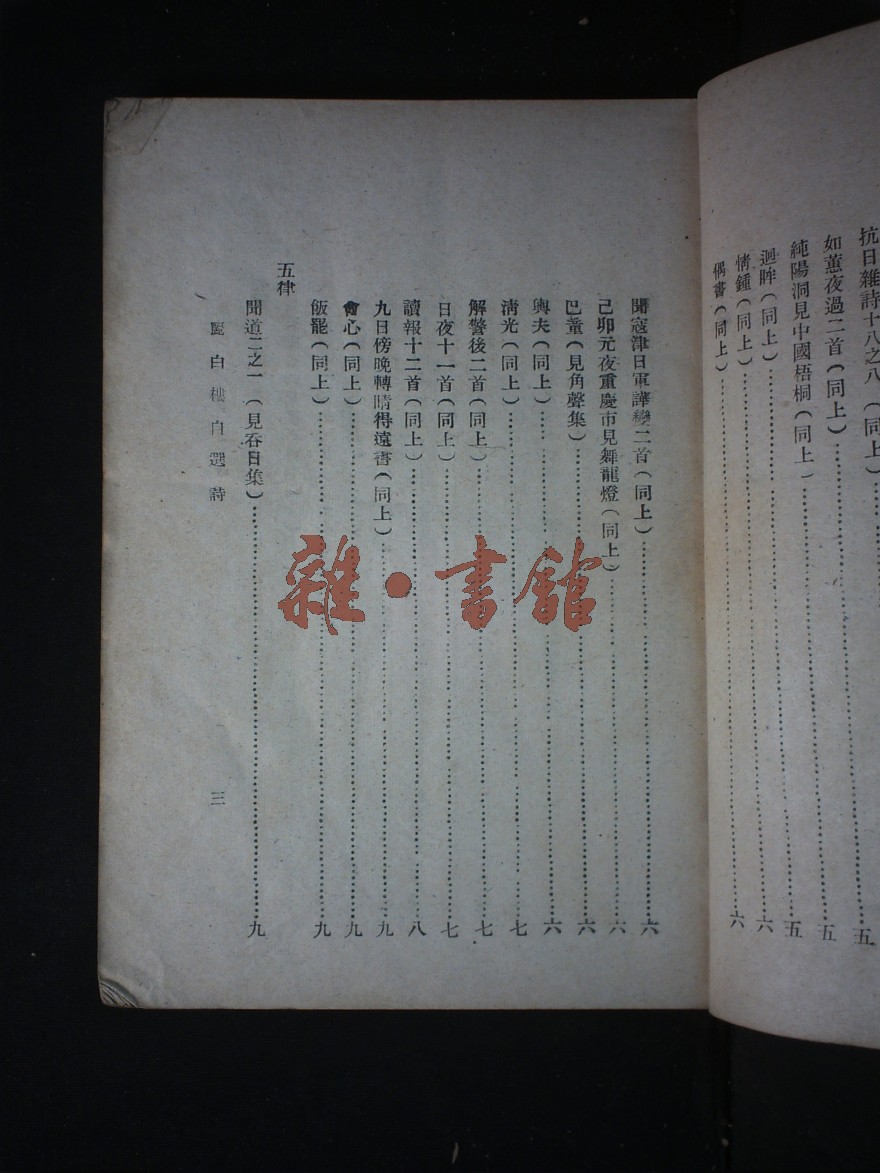 抗日雜詩十八之八（同上）……五
如蕙夜過二首（同上）……五
純陽洞見中國梧桐（同上）……五
迴眸（同上）……六
情鍾（同上）……六
偶書（同上）……六
聞寇津日軍譁變二首（同上）……六
己卯元夜重慶市見舞龍燈（同上）……六
巴童（見角聲集）……六
輿夫（同上）……六
淸光（同上）……七
解警後二首（同上）……七
日夜十一首（同上）……七
讀報十二首（同上）……八
九日傍晚轉晴得遠書（同上）……九
會心（同上）……九
飯罷（同上）……九
五律
聞道二之一（見吞日集）……九
白樓自選詩
三
雜·書館